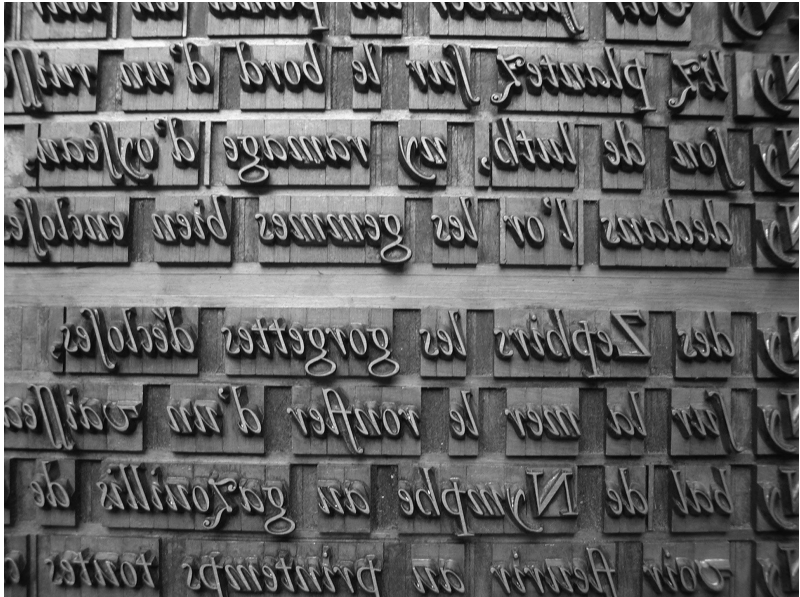 Ny liz plantez ſur le bord d'un ruiſſ
Ny ſon de luth, ny ramage d'oyſeau,
Ny dedans l'or les gemmes bien encloſes
Ny des Zephirs les gorgettes décloſes,
Ny ſur la mer le ronfler d'un vaiſſea
Ny bal de Nymphe au gazouillis de
Ny voir fleurir au printemps toutes